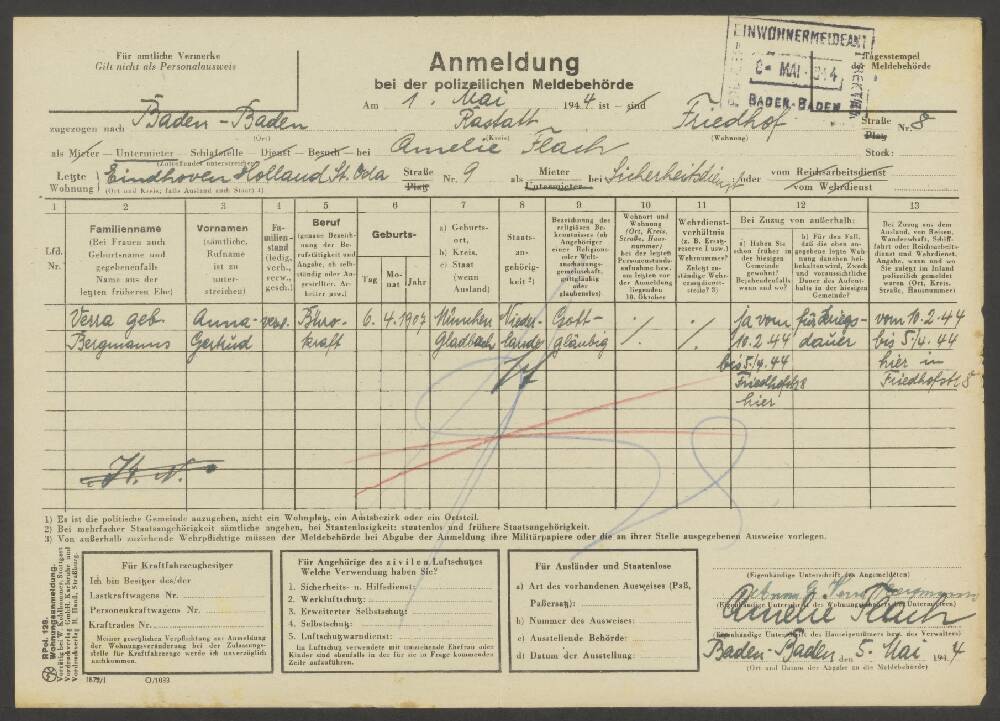 Für amtliche Vermerke
Gilt nicht als Personalausweis
Anmeldung
bei der polizeilichen Meldebehörde
EINWOHNERMELDEAMT
MAI
BADEN-BADEN
Tagesstempel
der Meldebehörde
Am 1. Mai 1944 ist – sind
zugezogen nach Baden-Baden Rastatt Friedhof Straße Platz Nr. 8
(Ort) (Kreis) (Wohnung)
als Mieter – Untermieter – Schlafstelle – Dienst – Besuch – bei Amelie Flach Stock:
(Zutreffendes unterstreichen)
Letzte Wohnung } Eindhoven Holland St. Oda Straße Platz Nr. 9 als Mieter Untermieter bei Sicherheitsdienst oder vom Reichsarbeitsdienst vom Wehrdienst
(Ort und Kreis; falls Ausland auch Staat) 1)
1 2 3 4 5 6 7 8 9 10 11 12 13
Lfd. Nr.
Familienname
(Bei Frauen auch
Geburtsname und
gegebenenfalls
Name aus der
letzten früheren Ehe)
Vornamen
(sämtliche,
Rufname
ist zu
unter-
streichen)
Fa-
milien-
stand
(ledig,
verh.,
verw.,
gesch.)
Beruf
(genaue Bezeich-
nung der Be-
rufstätigkeit und
Angabe, ob selb-
ständig oder An-
gestellter, Ar-
beiter usw.)
Geburts-
Tag Mo-nat Jahr
a) Geburts-
ort,
b) Kreis,
c) Staat
(wenn
Ausland)
Staats-
an-
gehörig-
keit 2)
Bezeichnung des
religiösen Be-
kenntnisses (ob
Angehöriger
einer Religions-
oder Welt-
anschauungs-
gemeinschaft,
gottgläubig
oder
glaubenslos)
Wohnort und
Wohnung
(Ort, Kreis,
Straße, Haus-
nummer)
bei der letzten
Personenstands-
aufnahme bzw.
am letzten vor
der Anmeldung
liegenden
10. Oktober
Wehrdienst-
verhältnis
(z. B. Ersatz-
reserve I usw.)
Wehrnummer?
Zuletzt zu-
ständige Wehr-
ersatzdienst-
stelle? 3)
Bei Zuzug von außerhalb:
a) Haben Sie
schon früher in
der hiesigen
Gemeinde
gewohnt?
Bejahendenfalls
wann und wo?
b) Für den Fall,
daß die oben an-
gegebene letzte Woh-
nung daneben bei-
behalten wird, Zweck
und voraussichtliche
Dauer des Aufent-
halts in der hiesigen
Gemeinde?
Bei Zuzug aus dem
Ausland, von Reisen,
Wanderschaft, Schiff-
fahrt oder Reichsarbeits-
dienst und Wehrdienst.
Angabe, wann und wo
Sie zuletzt im Inland
polizeilich gemeldet
waren (Ort, Kreis,
Straße, Hausnummer)
Verra geb. Anna- verw. Büro- 6. 4. 1907 München Nieder- Gott- ./. ./. Ja vom für Kriegs- vom 10.2.44
Bergmanns Gertrud kraft Gladbach lande gläubig 10.2.44 dauer bis 5/4.44
bis 5/4.44 hier in
Friedhofstr 8 Friedhofstr. 8
hier
1) Es ist die politische Gemeinde anzugeben, nicht ein Wohnplatz, ein Amtsbezirk oder ein Ortsteil.
2) Bei mehrfacher Staatsangehörigkeit sämtliche angeben, bei Staatenlosigkeit: staatenlos und frühere Staatsangehörigkeit.
3) Von außerhalb zuziehende Wehrpflichtige müssen der Meldebehörde bei Abgabe der Anmeldung ihre Militärpapiere oder die an ihrer Stelle ausgegebenen Ausweise vorlegen.
RPol. 128.
Wohnungsanmeldung.
Für Kraftfahrzeugbesitzer
Ich bin Besitzer des/der
Lastkraftwagens Nr.
Personenkraftwagens Nr.
Kraftrades Nr.
Meiner gesetzlichen Verpflichtung zur Anmeldung
der Wohnungsveränderung bei der Zulassungs-
stelle für Kraftfahrzeuge werde ich unverzüglich
nachkommen.
Für Angehörige des zivilen Luftschutzes
Welche Verwendung haben Sie?
1. Sicherheits- u. Hilfsdienst:
2. Werkluftschutz:
3. Erweiterter Selbstschutz:
4. Selbstschutz:
5. Luftschutzwarndienst:
Im Luftschutz verwendete mit umziehende Ehefrau oder
Kinder sind ebenfalls in der für sie in Frage kommenden
Zeile aufzuführen.
Für Ausländer und Staatenlose
a) Art des vorhandenen Ausweises (Paß,
Paßersatz):
b) Nummer des Ausweises:
c) Ausstellende Behörde:
d) Datum der Ausstellung:
(Eigenhändige Unterschrift des Angemeldeten)
(Eigenhändige Unterschrift des Wohnungsinhabers bei Untermietern)
Amelie Flach
(Eigenhändige Unterschrift des Hauseigentümers bzw. des Verwalters)
Baden-Baden den 5. Mai 1944
(Ort und Datum der Abgabe an die Meldebehörde)